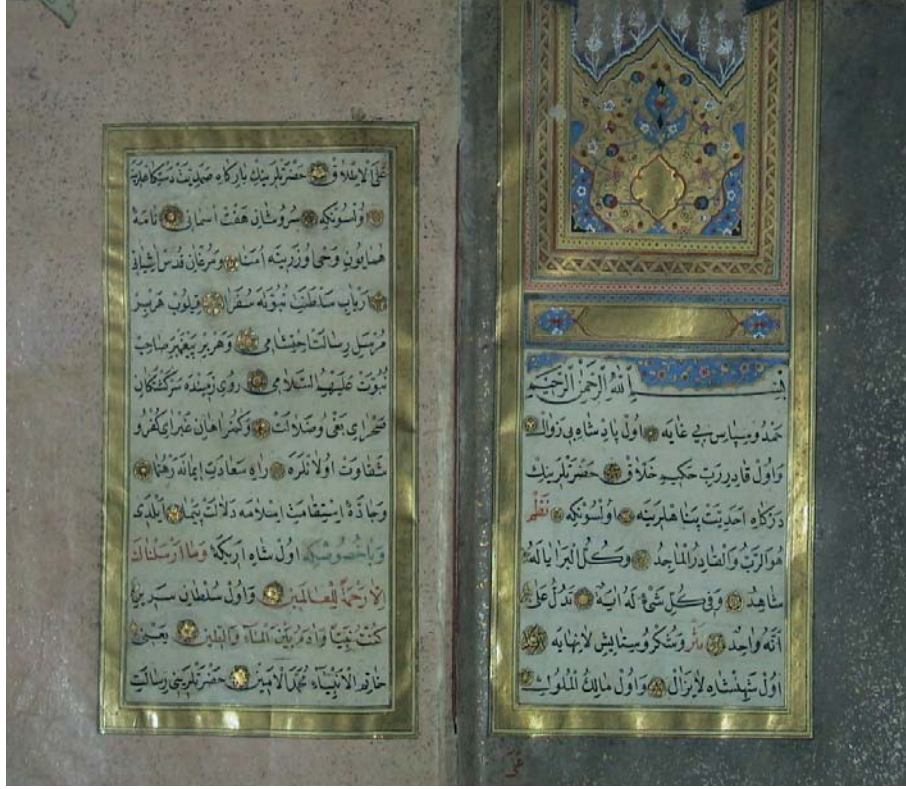 بسم الله الرحمن الرحيم
حمد و سپاس بی غایه اول پادشاه بی زوال
واول قادر رب حکیم خلاق حضرتلرینك
درکاه احدیت پناهلرینه اولسونکه نظم
هو الرب والقادر الماجد وكل البرايا له
شاهد وفي كل شئ له اية تدل على
انه واحد نثر وشکر و ستایش لا نهایه
اول شهنشاه لا یزال واول مالك الملوك
على الاطلاق حضرتلرینك بارکاه صمدیت
اولسونکه سروشان هفت آسمانی نامۀ
همایون وحی وزرینه امنا ومرغان قدس آشیانی
ارباب سلطنت نبوته سفرا قیلوب هر بر
مرسل رسالت احتشامی وهر بر پیغمبر صاحب
نبوت علیهم السلامی روی زمینده سرکشتکان
صحرای بغی و ضلالت وکمراهان غبرای کفر و
شقاوت اولانلره راه سعادت ایمانه رهنما
وجادۀ استقامت اسلامه دلالت ایلدی
وباخصوصکه اول شاه اریکۀ وما ارسلناك
الا رحمة للعالمين واول سلطان سریر
كنت نبيا وادم بين الماء والطين یعنی
خاتم الانبياء محمد الامين حضرتلرینی رسالت